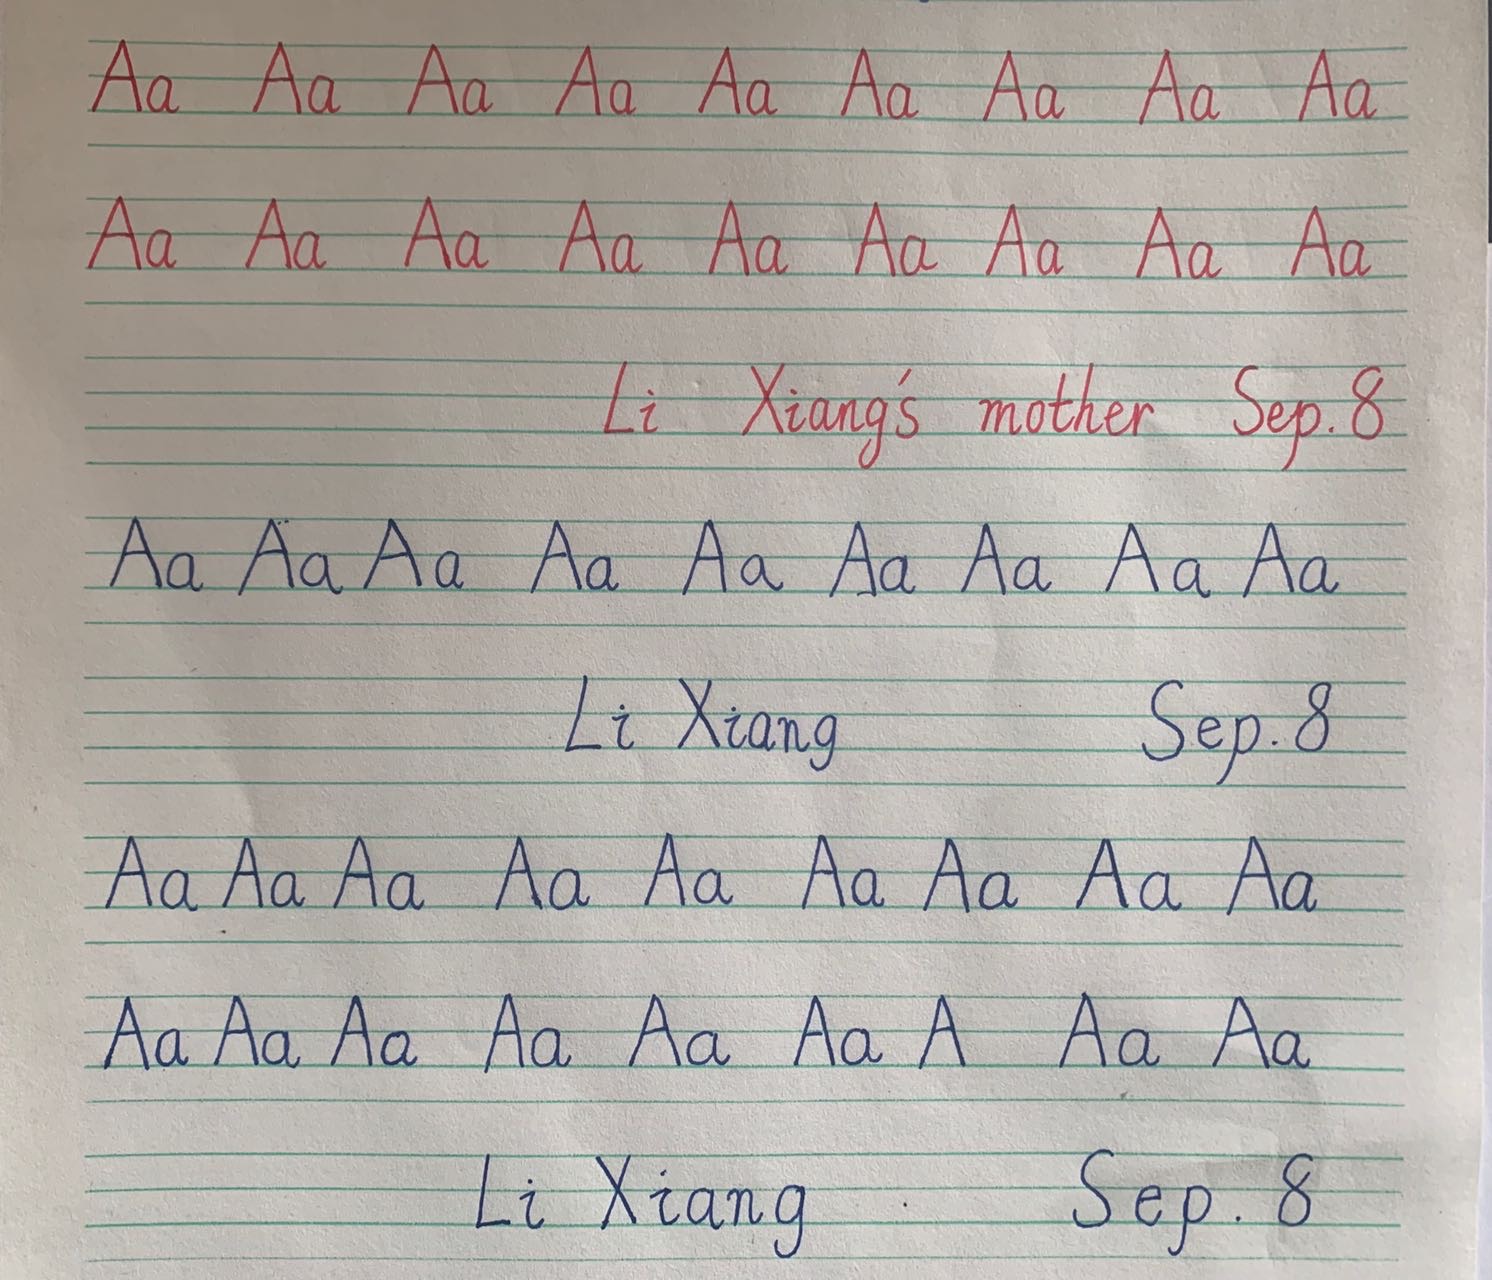 Aa Aa Aa Aa Aa Aa Aa Aa Aa
Aa Aa Aa Aa Aa Aa Aa Aa Aa
Li Xiang's mother Sep. 8
Aa Aa Aa Aa Aa Aa Aa Aa Aa
Li Xiang Sep. 8
Aa Aa Aa Aa Aa Aa Aa Aa Aa
Aa Aa Aa Aa Aa Aa A Aa Aa
Li Xiang Sep. 8